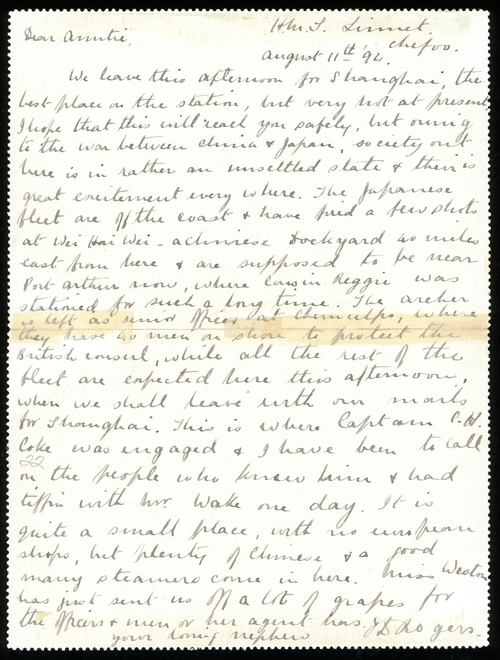 H.M.S. Linnet.
Dear Auntie,
Chefoo.
August 11th 94.
We leave this afternoon for Shanghai, the
best place on the station, but very hot at present
I hope that this will reach you safely, but owing
to the war between China & Japan, society out
here is in rather an unsettled state & their is
great excitement every where. The Japanese
fleet are off the coast & have fired a few shots
at Wei Hai Wei - a chinese Dockyard 40 miles
east from here & are supposed to be near
Port Arthur now, where Cousin Reggie was
stationed for such a long time. The Archer
is left as senior officer at Chemulpo, where
they have 40 men on shore to protect the
British consul, while all the rest of the
fleet are expected here this afternoon,
when we shall leave with our mails
for Shanghai. This is where Captain C.H.
Coke was engaged & I have been to call
22
on the people who knew him & had
tiffin with Mr Wake one day. It is
quite a small place, with no european
shops, but plenty of Chinese & a good
many steamers come in here. Miss Weston
has just sent us off a lot of grapes for
the officers & men or her agent has.
your loving nephew
Rogers.